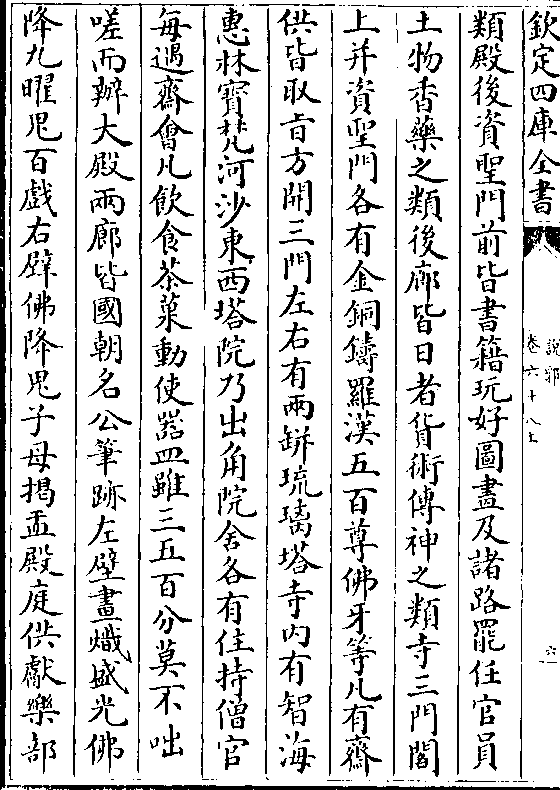 欽定四庫全書
說郛
卷六十八上
六
類殿後資聖門前皆書籍玩好圖畫及諸路罷任官員
土物香藥之類後廊皆日者貨術傳神之類寺三門閣
上并資聖門各有金銅鑄羅漢五百尊佛牙等凡有齋
供皆取旨方開三門左右有兩缾琉璃塔寺内有智海
惠林寶梵河沙東西塔院乃出角院舍各有住持僧官
每遇齋會凡飲食茶菓動使器皿雖三五百分莫不咄
嗟而辦大殿兩廊皆國朝名公筆跡左壁畫熾盛光佛
降九曜鬼百戲右壁佛降鬼子母揭盂殿庭供獻樂部